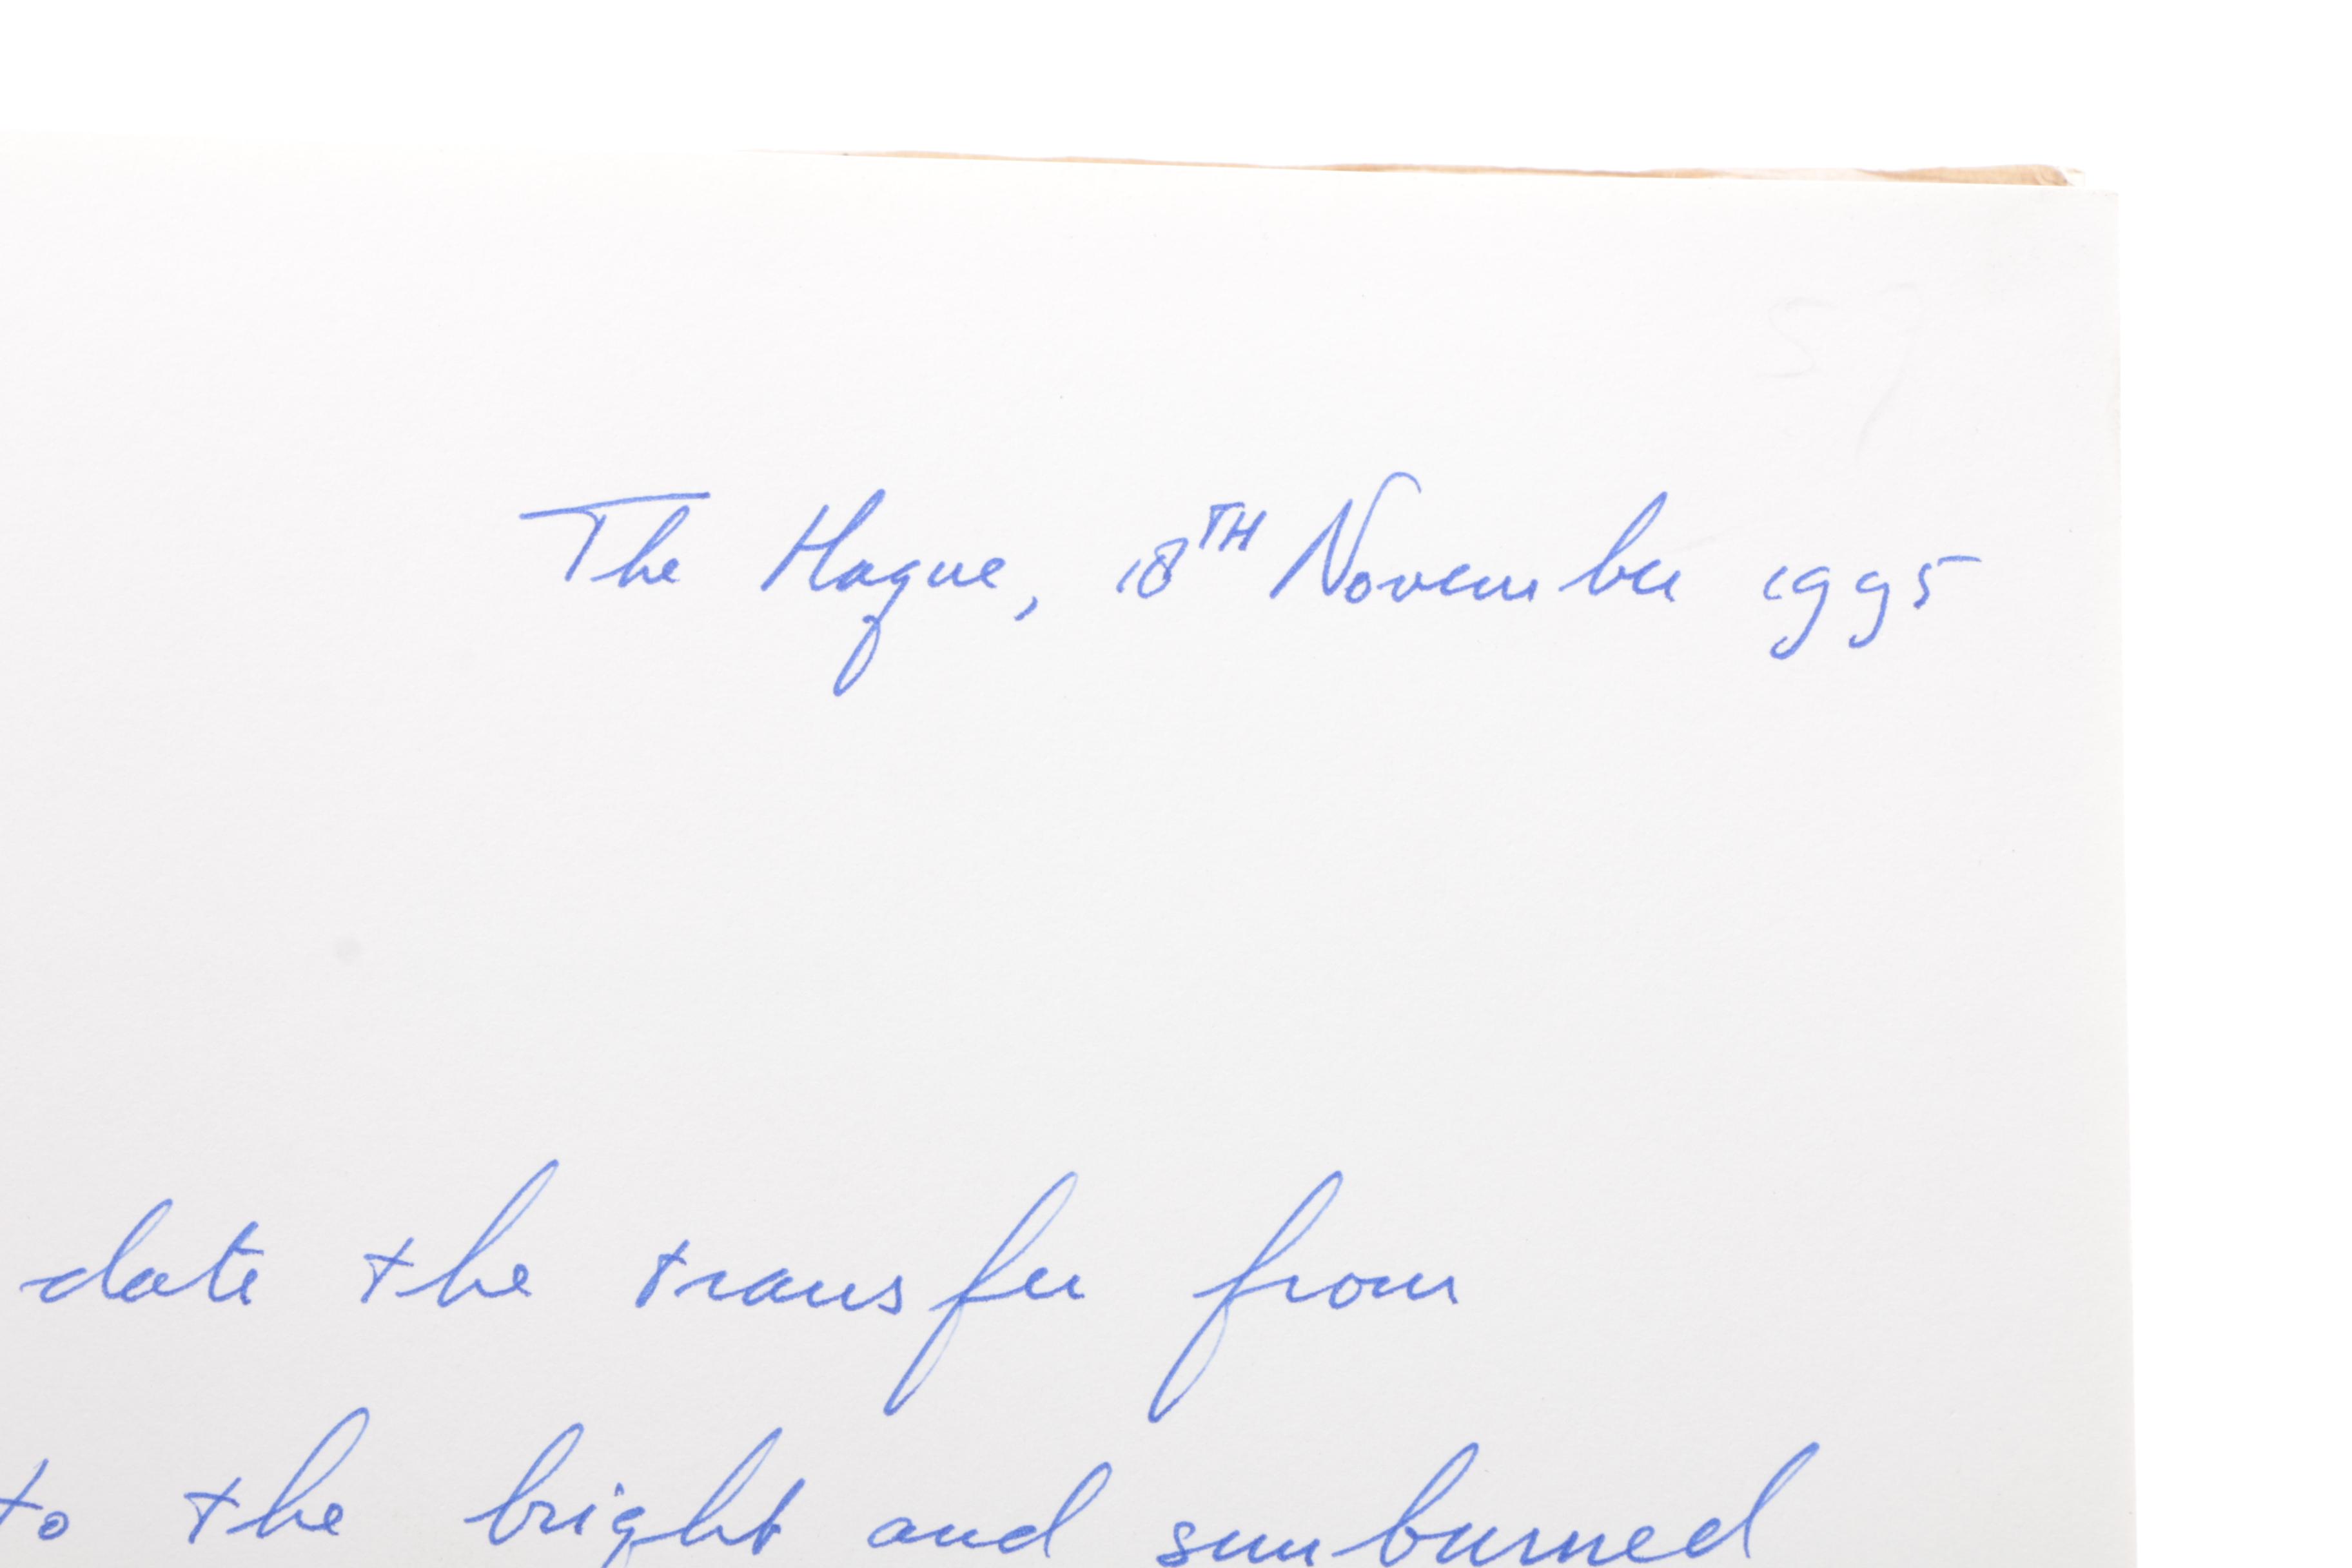 57
The Hague, 18TH November 1995
date the transfer from
to the bright and sunburned